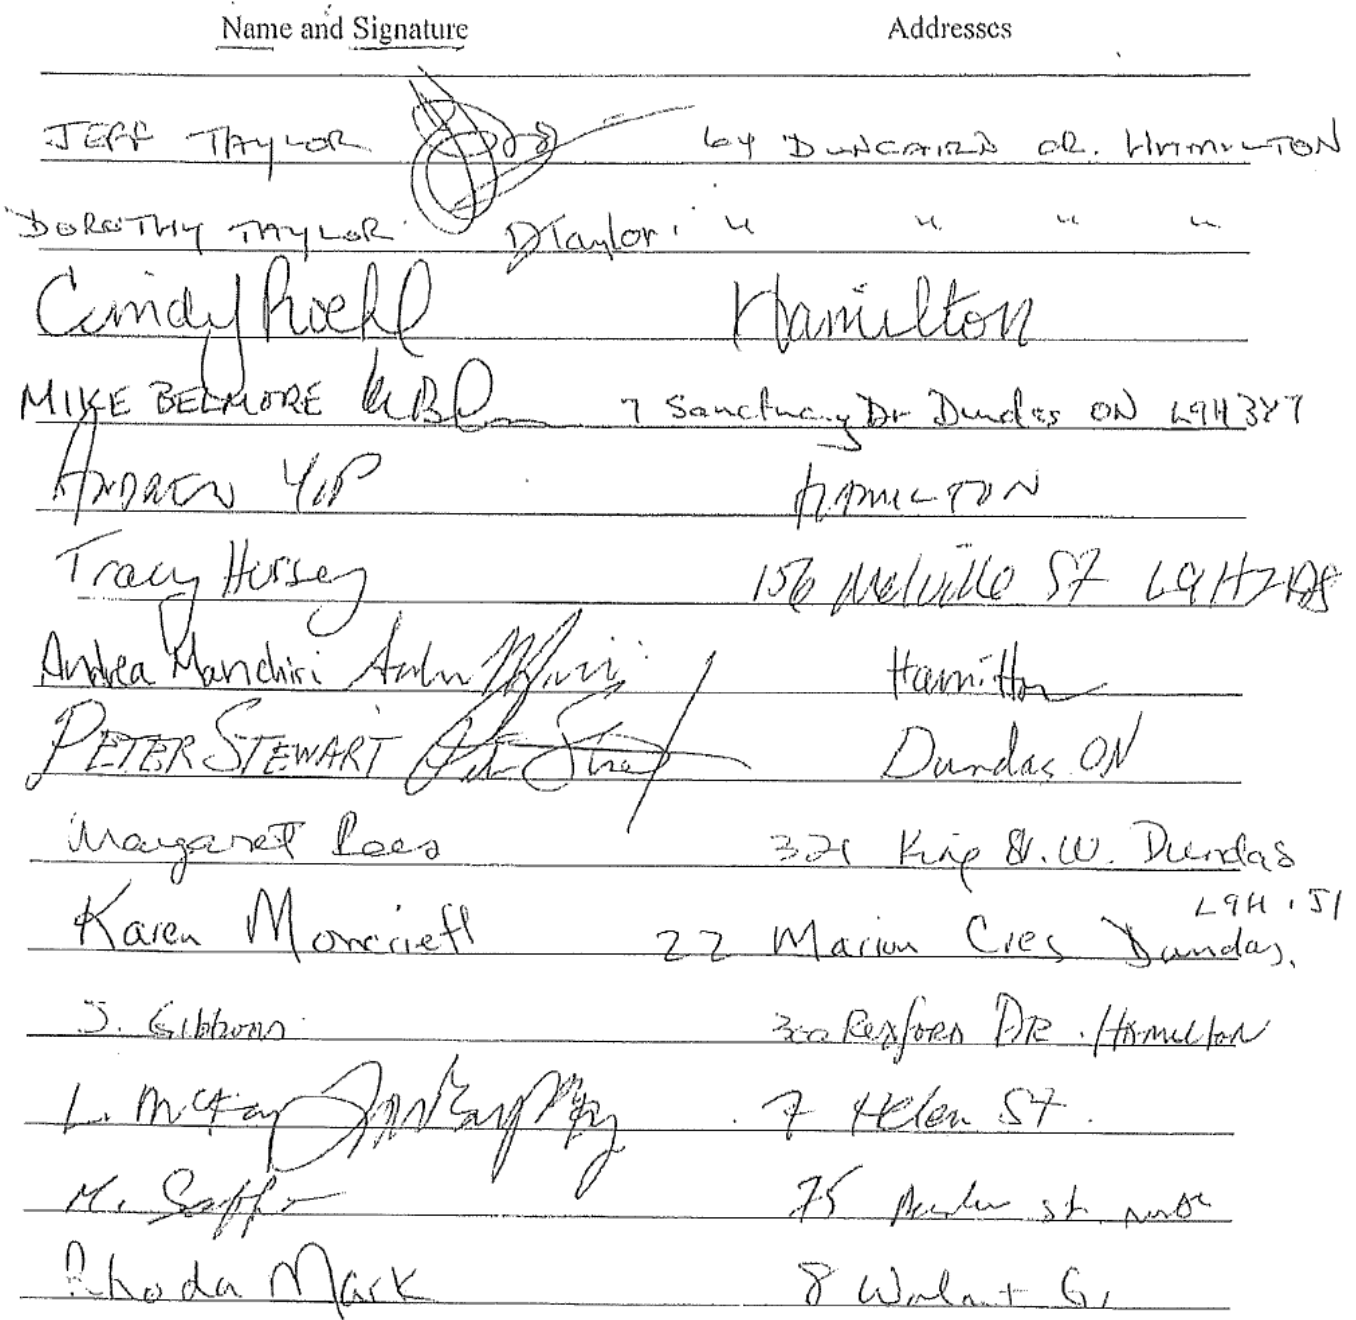 Name and Signature Addresses
JEFF TAYLOR 64 DUNCAIRN CR. HAMILTON
DOROTHY TAYLOR DTaylor " " " "
Cindy Roehl Hamilton
MIKE BELMORE 7 Sanctuary Dr Dundas ON L9H 3Y7
ANDREW YIP HAMILTON
Tracy Hersey 156 Melville St L9H 2A8
Andrea Manchiri Hamilton
PETER STEWART Dundas ON
Margaret Rees 321 King St. W. Dundas
L9H
Karen Moncrieff 22 Marion Cres Dundas.
J. Gibbons Rexford DR. Hamilton
L. McKay 7 Helen St.
M. 75 St.
Rhoda Mark 8 Walnut G.